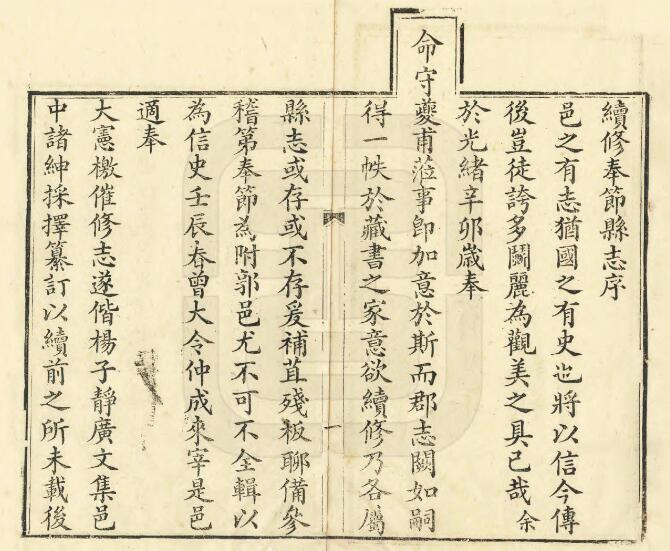 續修奉節縣志序
邑之有志猶國之有史也將以信今傳
後豈徒誇多鬭麗為觀美之具已哉余
於光緒辛卯歲奉
命守夔甫蒞事卽加意於斯而郡志闕如嗣
得一帙於藏書之家意欲續修乃各屬
縣志或存或不存爰補苴殘板聊備參
稽第奉節為附郭邑尤不可不全輯以
為信史壬辰春曾大令仲成來宰是邑
適奉
大憲檄催修志遂偕楊子靜廣文集邑
中諸紳採擇纂訂以續前之所未載後
一